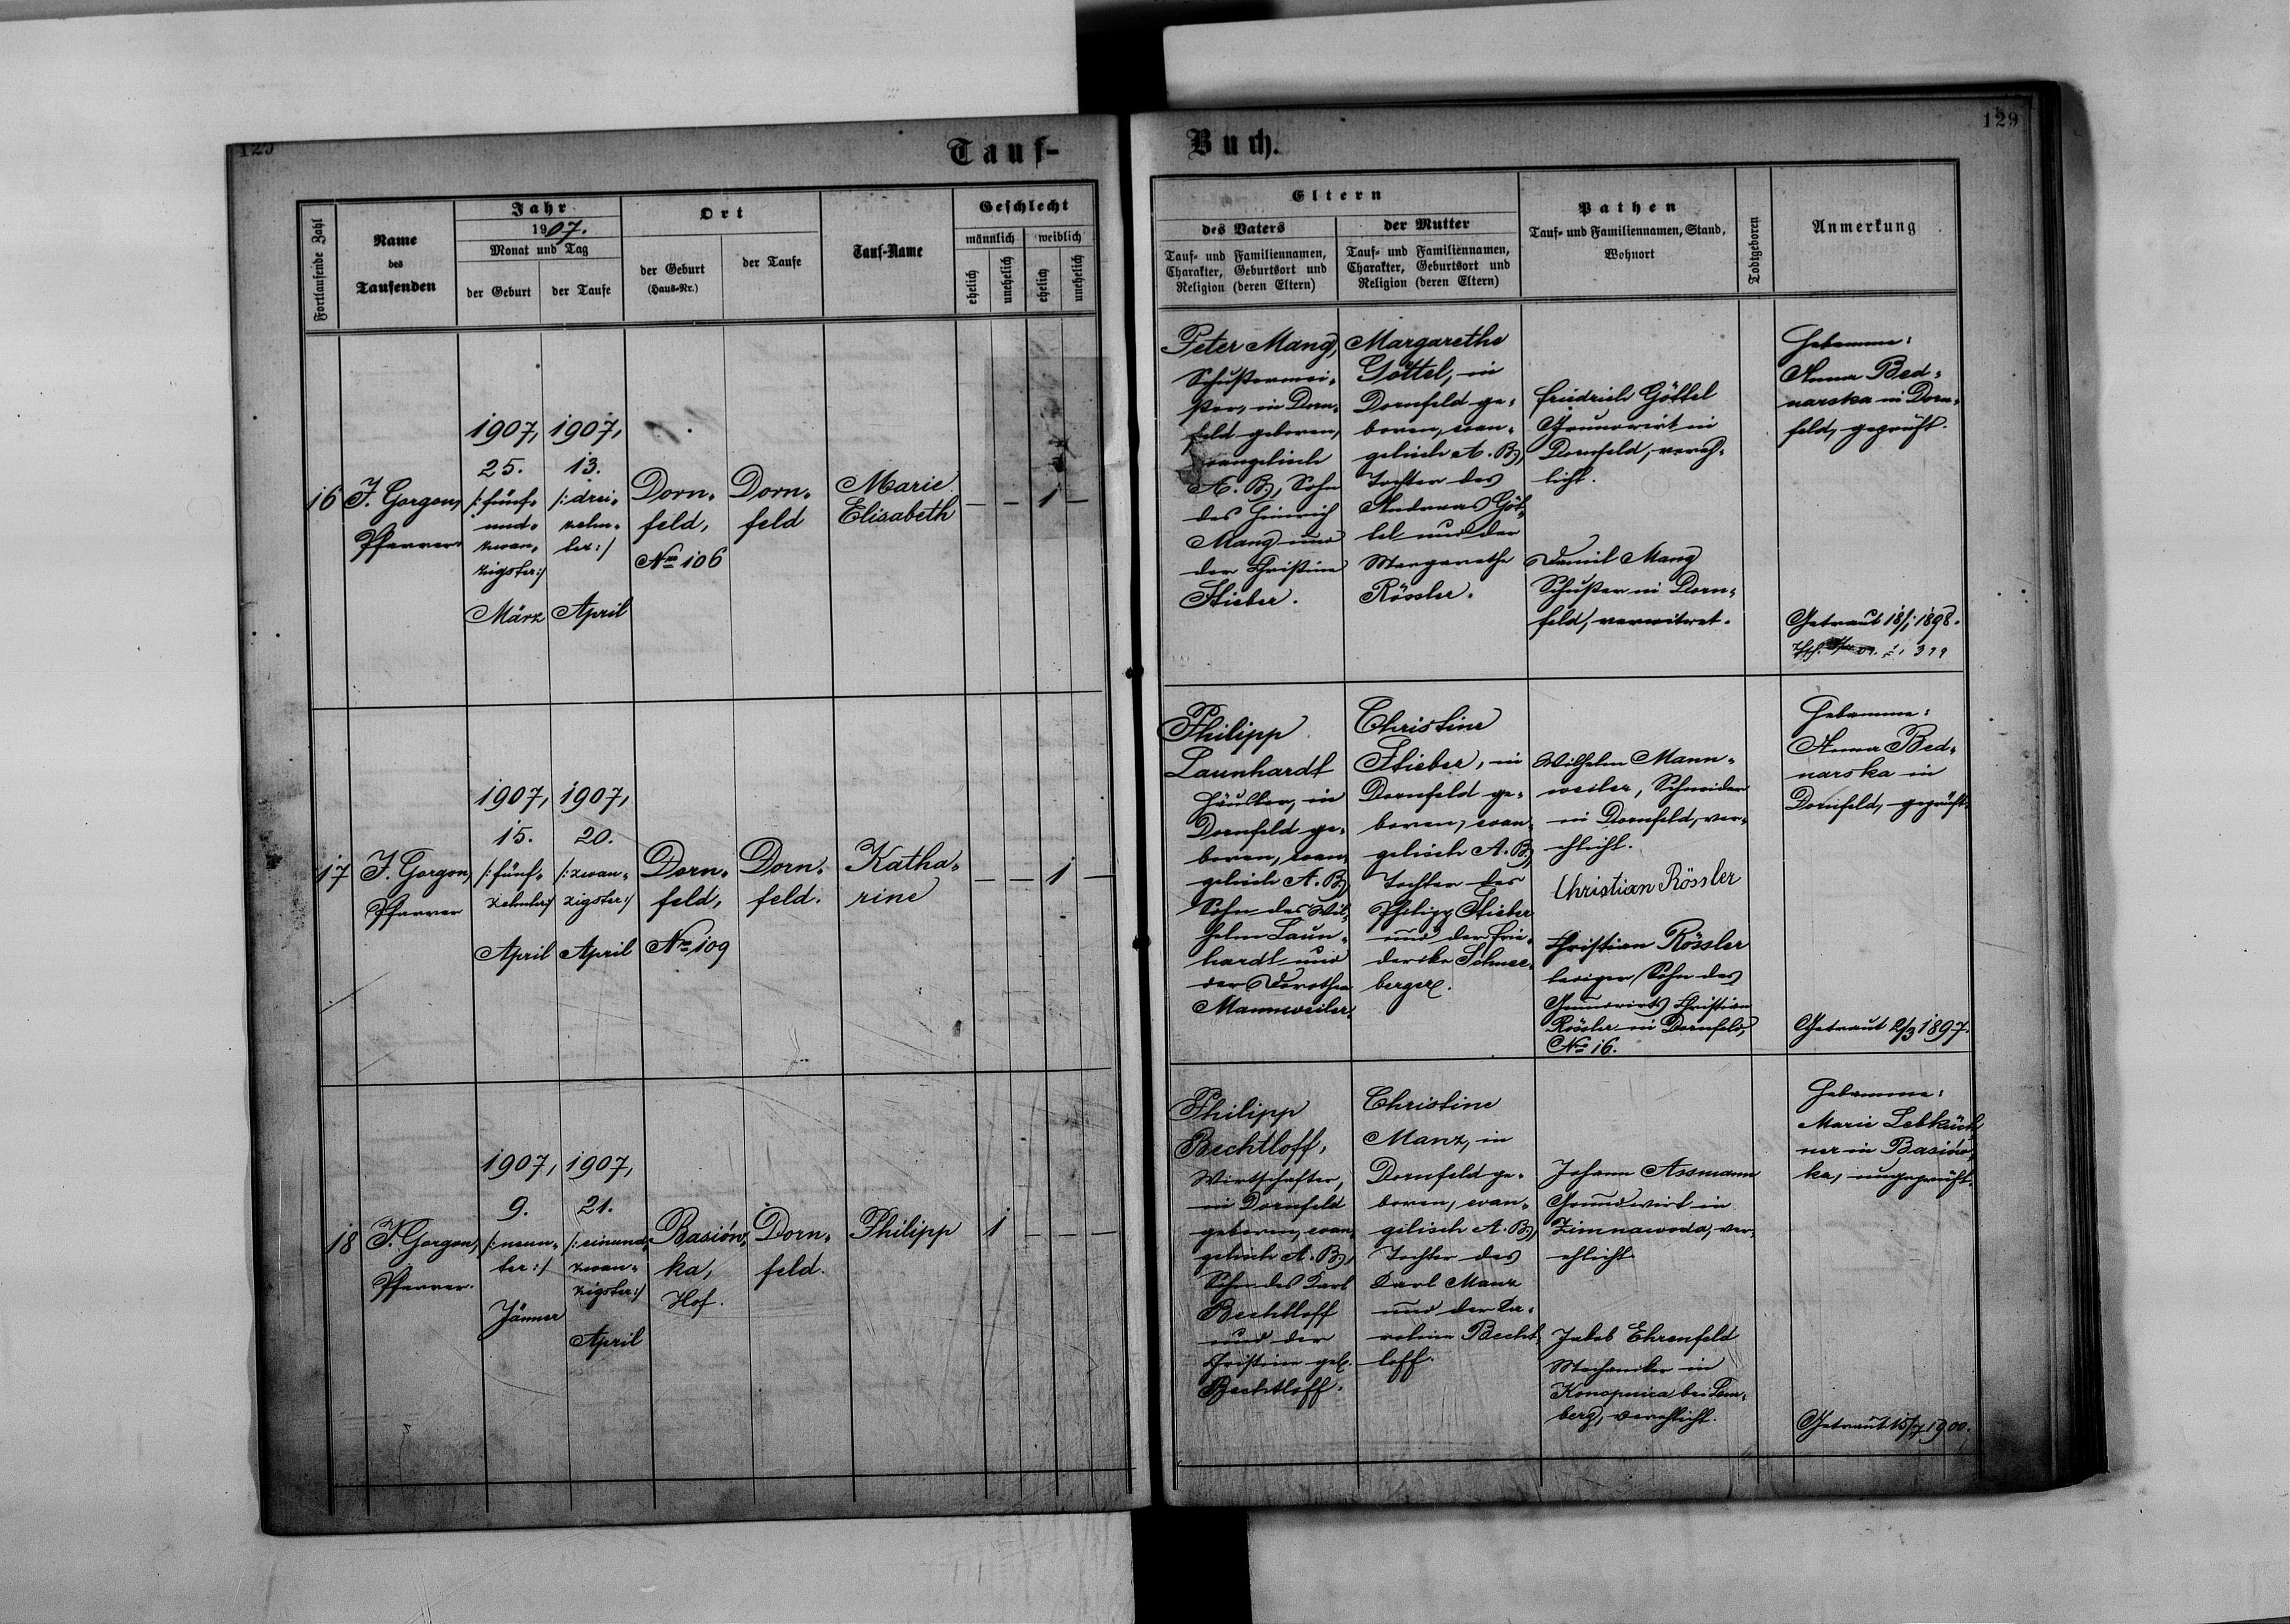 129
Tauf-
Buch.
129
Fortlaufende Zahl
Name
des
Taufenden
Jahr
1907.
Monat und Tag
der Geburt
der Taufe
Ort
der Geburt
(Haus-Nr.)
der Taufe
Tauf-Name
Geschlecht
männlich
weiblich
ehelich
unehelich
ehelich
unehelich
Eltern
des Vaters
Tauf- und Familiennamen,
Charakter, Geburtsort und
Religion (deren Eltern)
der Mutter
Tauf- und Familiennamen,
Charakter, Geburtsort und
Religion (deren Eltern)
Pathen
Tauf- und Familiennamen, Stand,
Wohnort
Todtgeboren
Anmerkung
16
J. Gorgon,
Pfarrer
1907,
25.
/:fünf-
und-
zwan-
zigster:/
März
1907,
13.
/:drei-
zehn-
ter:/
April
Dorn-
feld,
No 106
Dorn-
feld
Marie
Elisabeth
— — 1 —
Peter Mang,
Schustermei-
ster, in Dorn-
feld geboren,
evangelisch
A. B., Sohn
des Heinrich
Mang und
der Christine
Stieber.
Margarethe
Göttel, in
Dornfeld ge-
boren, evan-
gelisch A. B.,
Tochter des
Andreas Göt-
tel und der
Margarethe
Rössler.
Friedrich Göttel
Grundwirt in
Dornfeld, vereh-
licht.
Daniel Mang
Schuster in Dorn-
feld, verwitwet.
Hebamme:
Anna Bed-
narska in Dorn-
feld, geprüft.
Getraut 18/1 1898.
17
J. Gorgon,
Pfarrer
1907,
15.
/:fünf-
zehnter:/
April
1907,
20.
/:zwan-
zigster:/
April
Dorn-
feld,
No 109
Dorn-
feld.
Katha-
rine
— — 1 —
Philipp
Launhardt
Häusler, in
Dornfeld ge-
boren, evan-
gelisch A. B.,
Sohn des Wil-
helm Laun-
hardt und
der Dorothea
Mannweiler.
Christine
Stieber, in
Dornfeld ge-
boren, evan-
gelisch A. B.,
Tochter des
Philipp Stieber
und der Frie-
derike Schnee-
berger.
Wilhelm Mann-
weiler, Schneider
in Dornfeld, ver-
ehlicht.
Christian Rössler
Christian Rössler
lediger Sohn des
Grundwirts Christian
Rössler in Dornfeld,
No 16.
Hebamme:
Anna Bed-
narska in
Dornfeld, geprüft.
Getraut 2/3 1897.
18
J. Gorgon,
Pfarrer.
1907,
9.
/:neun-
ter:/
Jänner
1907,
21.
/:einund-
zwan-
zigster:/
April
Basiów-
ka,
Hof.
Dorn-
feld.
Philipp
1 — — —
Philipp
Bechtloff,
Wirtschafter,
in Dornfeld
geboren, evan-
gelisch A. B.,
Sohn des Karl
Bechtloff
und der
Christine geb.
Bechtloff.
Christine
Manz, in
Dornfeld ge-
boren, evan-
gelisch A. B.,
Tochter des
Karl Manz
und der Ka-
roline Becht-
loff.
Johann Assmann
Grundwirt in
Zimnawoda, ver-
ehlicht.
Jakob Ehrenfeld
Mechaniker in
Konopnica bei Lem-
berg, verehlicht.
Hebamme:
Marie Lebküch-
ner in Basiów-
ka, ungeprüft.
Getraut 15/7 1900.